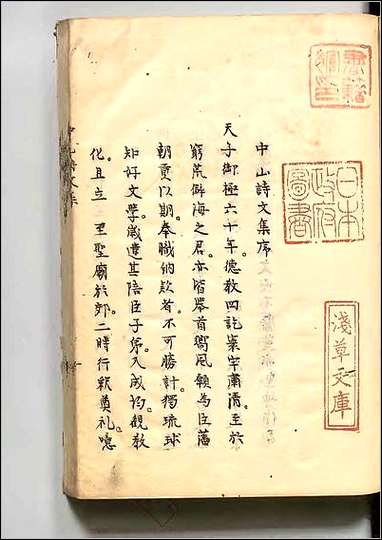 中山詩文集序
天子御極六十年德教四訖寰宇肅清至於
窮荒僻海之君亦皆擧首嚮風願為臣藩
朝貢以期奉職納欵者不可勝計獨琉球
知好文學歲遣其陪臣子弟入成均觀教
化且立 至聖廟於郡二時行釋奠禮噫
日本
政府
圖書
淺草文庫